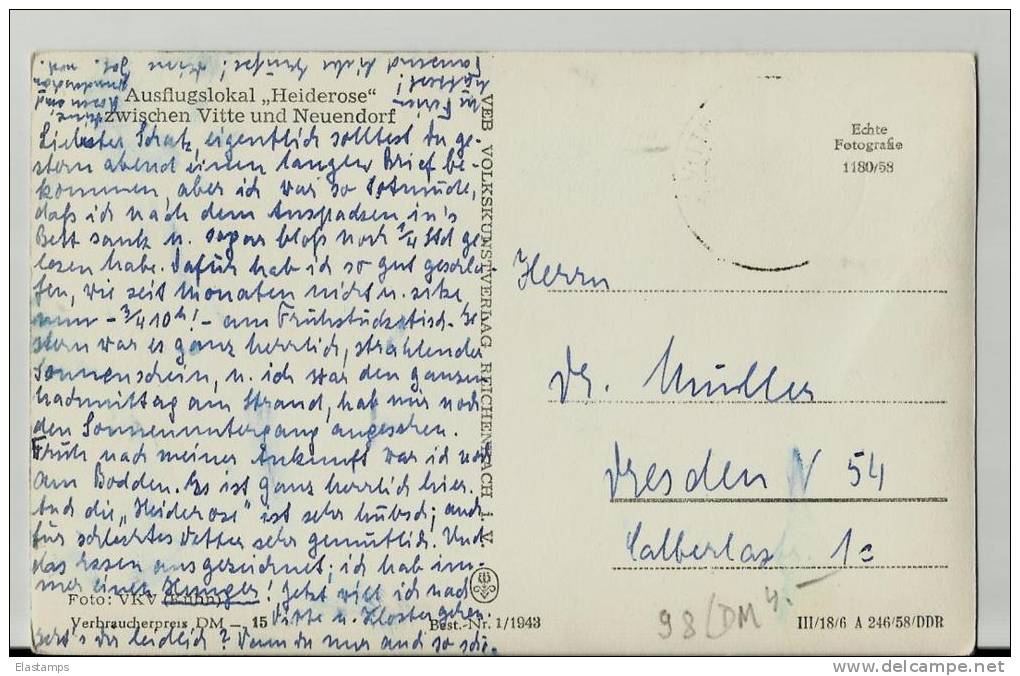 Ausflugslokal „Heiderose“
zwischen Vitte und Neuendorf
Liebster Schatz, eigentlich solltest du ge-
stern abend einen langen Brief be-
kommen, aber ich war so totmüde,
daß ich nach dem Auspacken in's
Bett sank u. sogar bloß noch 1/4 Std ge-
lesen habe. Dafür hab ich so gut geschla-
fen, wie seit Monaten nicht u. sitze
nun - 3/4 10h! - am Frühstückstisch. Ge-
stern war es ganz herrlich, strahlender
Sonnenschein, u. ich war den ganzen
Nachmittag am Strand, hab mir noch
den Sonnenuntergang angesehen.
Früh nach meiner Ankunft war ich noch
am Bodden. Es ist ganz herrlich hier.
Auch die „Heiderose“ ist sehr hübsch; auch
für schlechtes Wetter sehr gemütlich. Und
das Essen ausgezeichnet; ich hab im-
mer einen Hunger! Jetzt will ich nach
Vitte u. Kloster gehen.
Geht's dir leidlich? Wenn du nur auch so schö-
Tausend liebe Grüße! Deine
Foto: VKV (Kühn)
Verbraucherpreis DM —, 15
Best.-Nr. 1/1943
VEB VOLKSKUNSTVERLAG REICHENBACH I. V.
Echte
Fotografie
1180/58
Herrn
Dr. Müller
Dresden N 54
Calberlastr. 1c
98/DM 4.-
III/18/6 A 246/58/DDR
Elastamps
www.delcampe.net